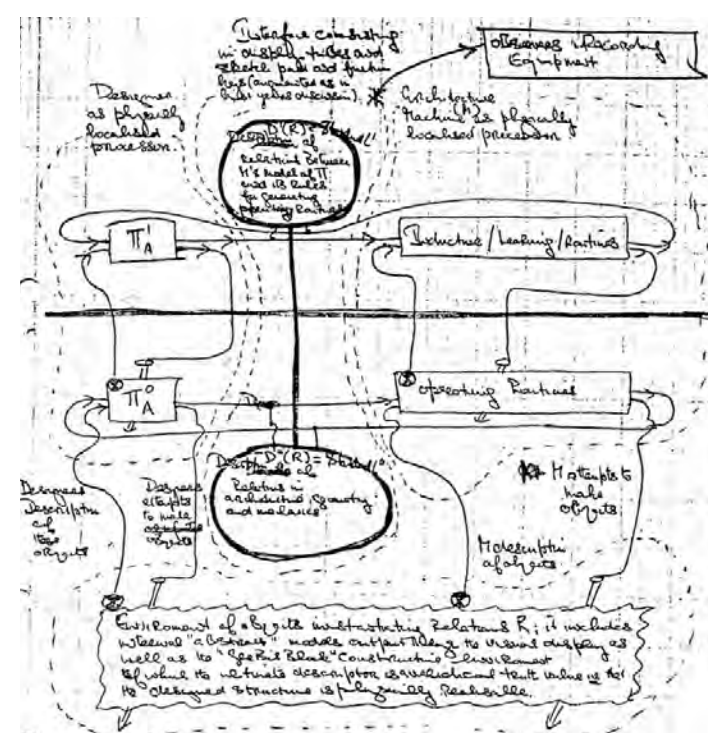 Interface consisting
in display tubes and
sketch pads and function
keys (augmented as in
last years discussion)
Observers & Recording
Equipment
Designer
as physically
localised
processor.
Architecture
Machine as physically
localised processor
D'(R) =
of
Relations Between
M's model of Π
and its Rules
for generating
operating Routines
Π¹A
Inductive / Learning / Routines
Π⁰A
Operating Routines
D⁰(R) =
Relations in
architecture, geometry
and mechanics
Designers
Description
of
these
objects
Designers
attempts
to make
objects
M attempts to
make
objects
M description
of objects
Enviroment of objects instantiating Relations R; it includes
internal "abstract" models output things to visual display as
well as the Block" Construction enviroment
of which the ultimate descriptor is
designed structure is physically Realisable.